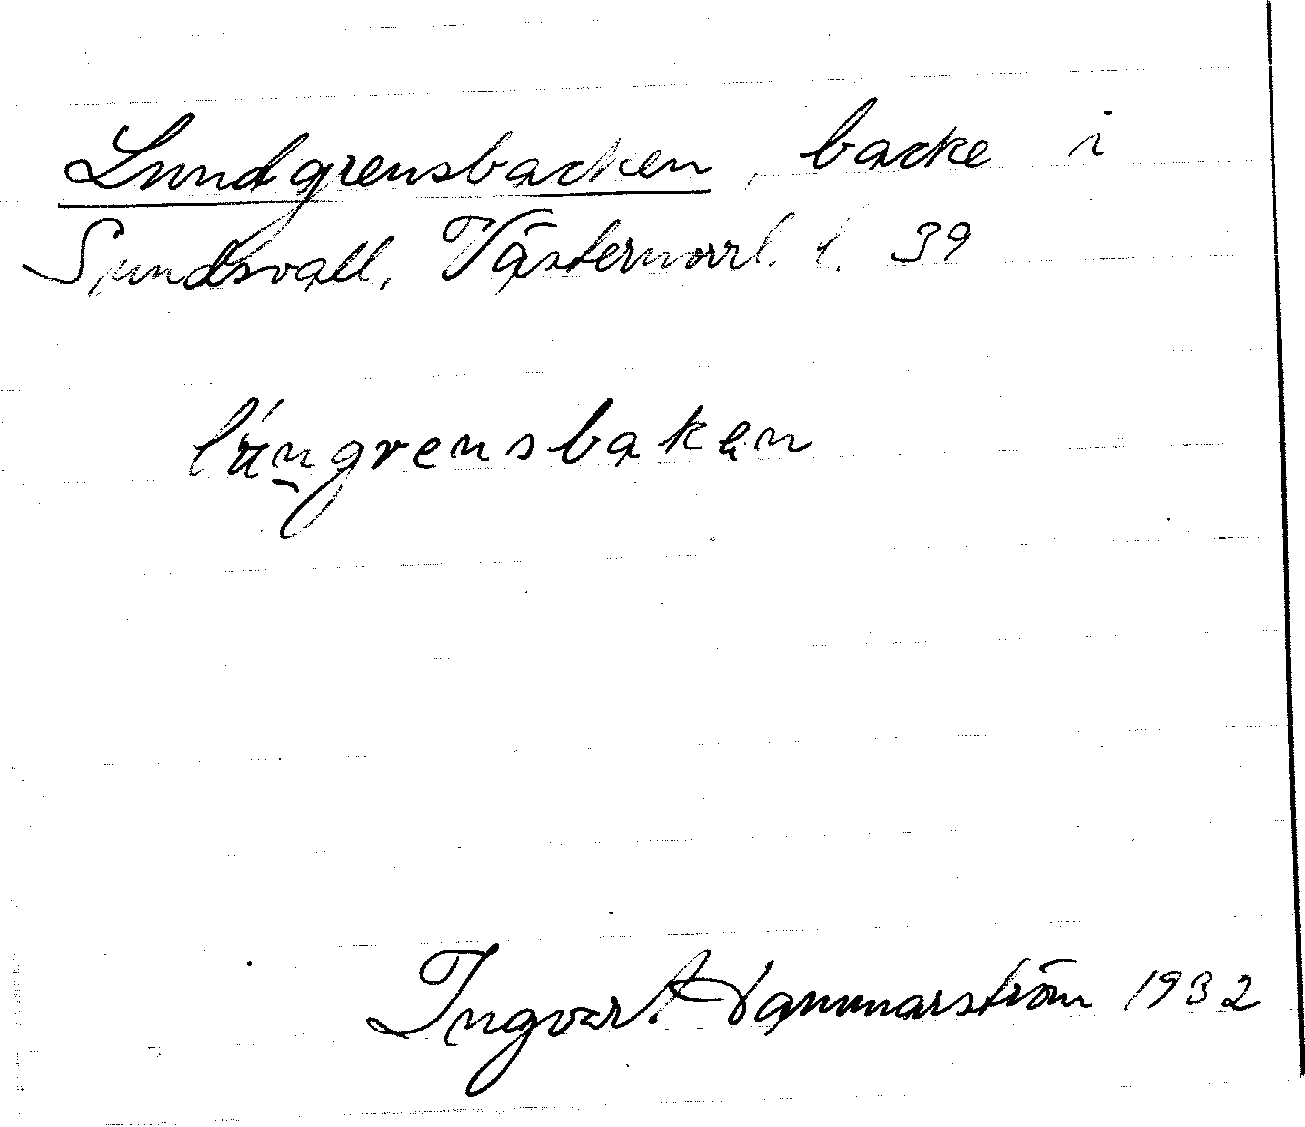 Lundgrensbacken, backe i
Sundsvall, Västernorrl. l. 39
lúngrensbakan
Ingvar Hammarström 1932